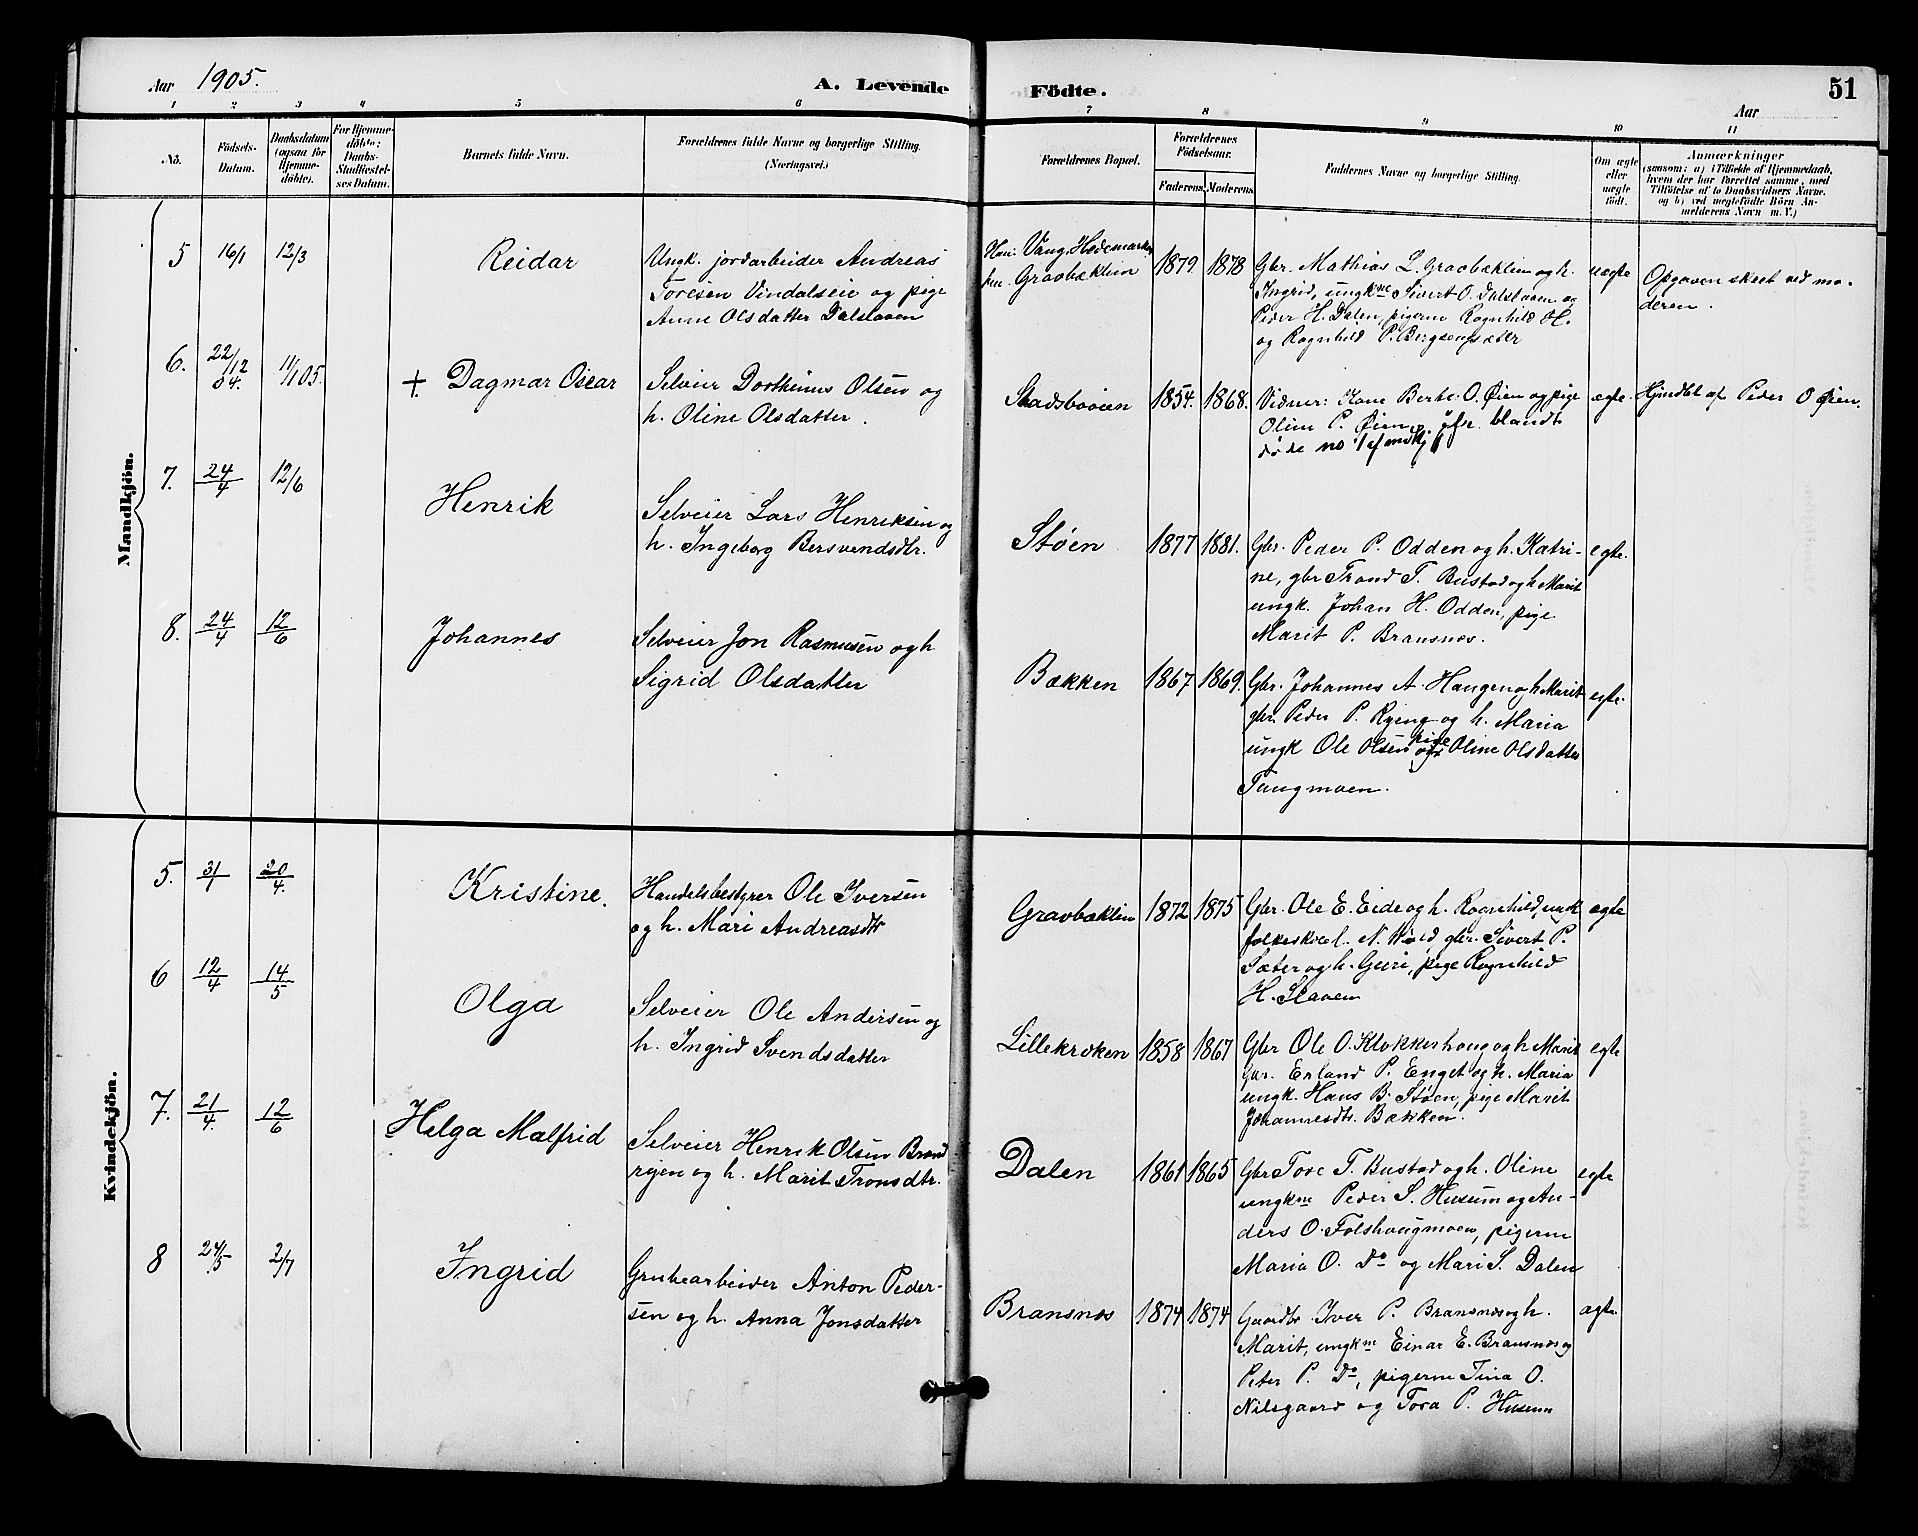 Aar 1905.
A. Levende Födte.
51
Aar
1 2 3 4 5 6 7 8 9 10 11
No.
Födsels-Datum.
Daabsdatum (ogsaa for Hjemmedöbte).
For Hjemmedöbte: Daabs-Stadfæstelses Datum.
Barnets fulde Navn.
Forældrenes fulde Navne og borgerlige Stilling. (Næringsvei.)
Forældrenes Bopæl.
Forældrenes Födselsaar.
Faderens. Moderens.
Faddernes Navne og borgerlige Stilling.
Om ægte eller uægte födt.
Anmærkninger
(saasom: a) i Tilfælde af Hjemmedaab,
hvem der har forrettet samme, med
Tilföielse af to Daabsvidners Navne,
og b) ved uægtefödte Börn An-
melderens Navn m. V.)
Mandkjön.
5 16/1 12/3 Reidar
Ungk. jordarbeider Andreas
Toresen Vindalseie og pige
Anne Olsdatter Dalslaaen
Han: Vang, Hedemarken
hun. Graobæklien
1879 1878
Gbr. Mathias L. Graobæklien og h.
Ingrid, ungkne Sivert O. Dalslaaen og
Peder H. Dalen, pigerne Ragnhild H.
og Ragnhild P. Bergsengsæter
uægte
Opgaven skeet ved mo-
deren.
6. 22/12 04. 11/1 05. + Dagmar Oscar
Selveier Dortheinus Olsen og
h. Oline Olsdatter.
Stadsbuøien
1854. 1868.
Vidner: Kone Berte O. Øien og pige
Oline P. Øien, jfr. blandt
døde no 1 af mdkj
egte
Hjmdbt af Peder O Øien.
7. 24/4 12/6 Henrik
Selveier Lars Henriksen og
h. Ingeborg Bersvendsdtr.
Støen
1877 1881.
Gbr. Peder P. Odden og h. Katri-
ne, gbr Trond T. Bustad og h Marit
ungk. Johan H. Odden, pige
Marit P. Bransnes.
egte.
8. 24/4 12/6 Johannes
Selveier Jon Rasmusen og h
Sigrid Olsdatter
Bækken
1867 1869.
Gbr. Johannes A. Haugen og h Marit
gbr Peder P. Ryeng og h. Maria
ungk Ole Olsen og pige Oline Olsdatter
Tangmoen.
egte.
Kvindekjön.
5. 31/1 20/4. Kristine.
Handelsbestyrer Ole Iversen
og h. Mari Andreasdtr
Graobæklien
1872 1875
Gbr. Ole E. Eide og h. Ragnhild, ungk
folkeskoel. N. Wold, gbr. Sivert P.
Sæter og h. Guri, pige Ragnhild
H. Slaaen
ægte
6 12/4 14/5 Olga
Selveier Ole Andersen og
h. Ingrid Svendsdatter
Lillekroken
1858 1867
Gbr Ole O. Klokkerhaug og h Marit
gbr. Erland P. Enget og h. Maria
ungk. Hans B. Støen, pige Marit
Johannesdtr. Bækken.
egte
7. 21/4. 12/6 Helga Malfrid
Selveier Henrik Olsen Brænd
ryen og h. Marit Tronsdtr.
Dalen
1861 1865
Gbr Tore T. Bustad og h. Oline
ungkne Peder S. Husum og An-
ders O. Folshaugmoen, pigerne
Maria O. Do og Mari S. Dalen
egte
8 24/5 2/7 Ingrid
Grubearbeider Anton Peder-
sen og h. Anna Jonsdatter
Bransnes
1874 1874
Gaardbr Iver P. Bransnes og h.
Marit, ungkne Einar E. Bransnes og
Peter P. Do, pigerne Tina O.
Nilsgaard og Tora P. Husum
ægte.